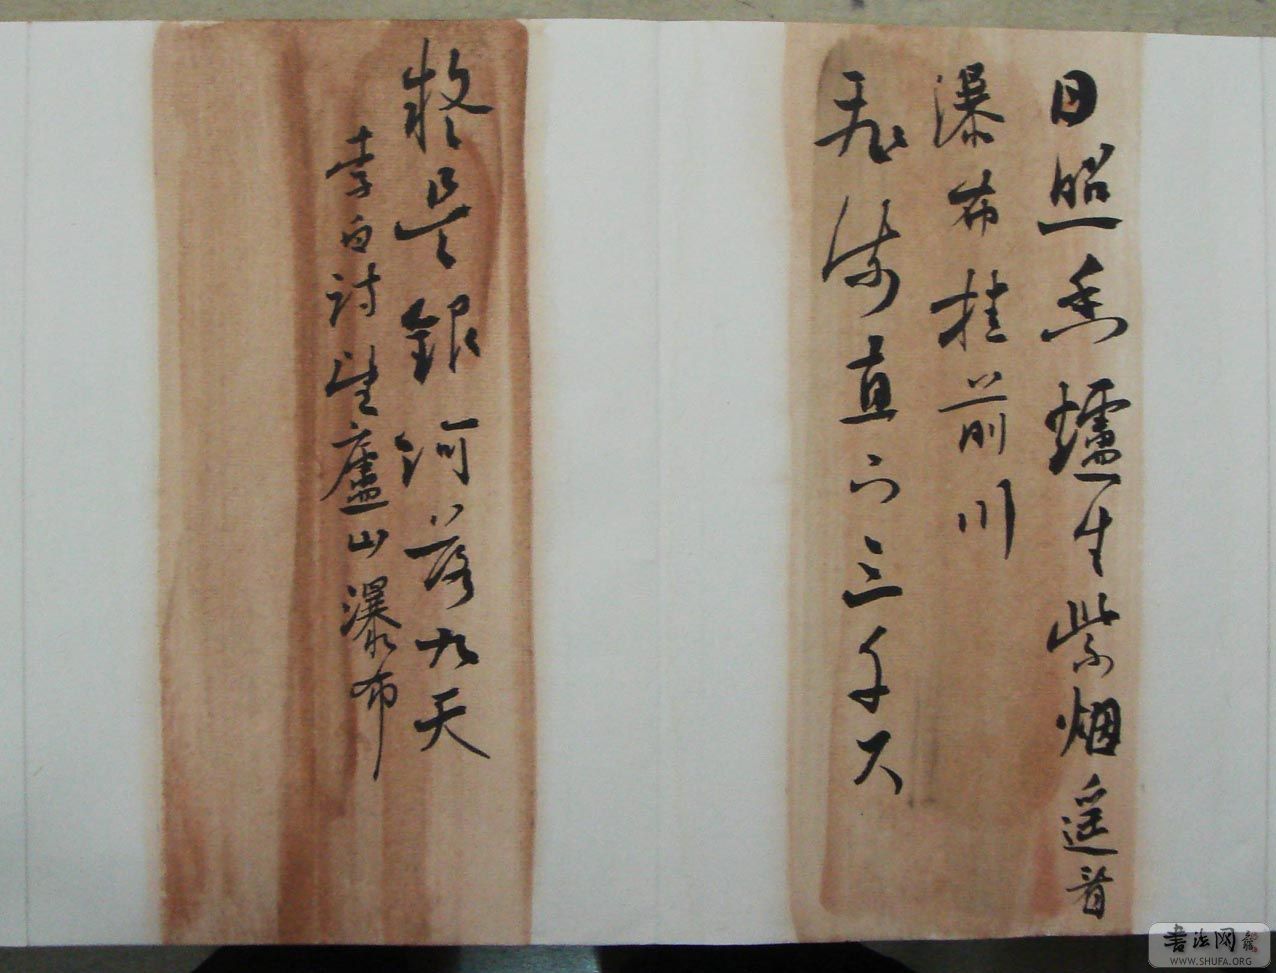 日照香爐生紫烟遥看
瀑布挂前川
飛流直下三千尺
疑是銀河落九天
李白詩望廬山瀑布
書法网
WWW.SHUFA.ORG